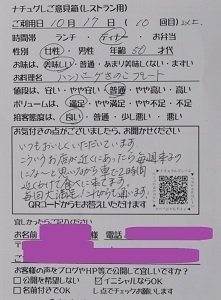 ナチュグレご意見箱(レストラン用)
ご利用日 10月17日(10回目)
時間帯 ランチ・ディナー・お弁当
性別 女性・男性 年齢 50 才代
お味は、美味しい・普通・あまり美味しくない・まずい
お料理名 ハンバーグきのこプレート
値段は、安い・やや安い・普通・やや高い・高い
ボリュームは、満足・やや満足・やや不足・不足
接客態度は、良い・普通・少し悪い・悪い
お気付きの点がございましたら、お聞かせください
いつもおいしくいただいています。
こういうお店が近くにあったら毎週来るのに
なーと思いながら車で2時間
近くかけて食べに来てます。
QRコードからもお答えいただけます
宜しかったらご記入ください
お名前 様 電話
ご住所
お客様の声をブログやHP等で公開して宜しいですか?
公開を希望しない イニシャルならOK
名前付きでOK し点でチェックお願いします